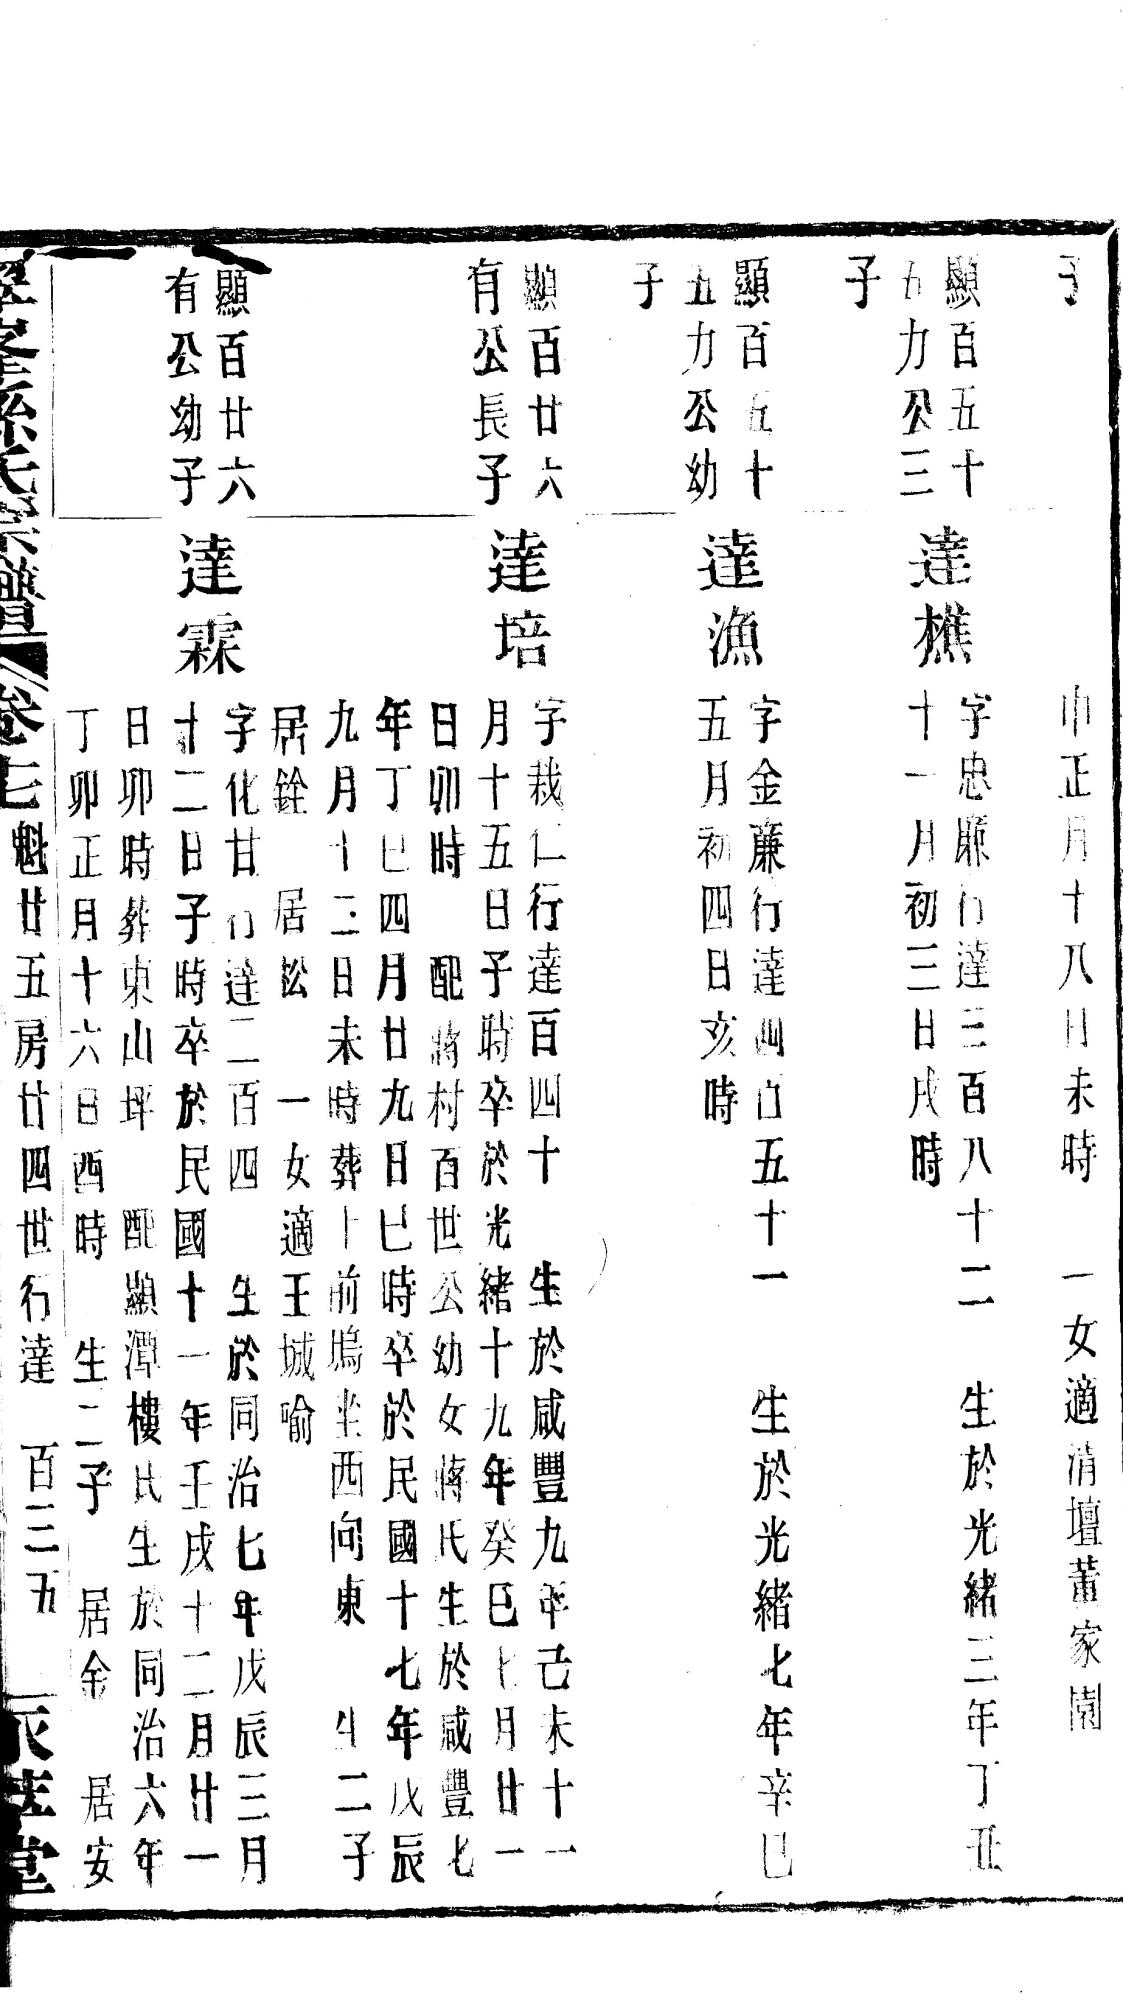 子
申正月十八日未時　一女適清壇董家園
顯百五十
五力公三
子
達樵
字忠廉行達三百八十二　生於光緒三年丁丑
十一月初三日戌時
顯百五十
五力公幼
子
達漁
字金廉行達四百五十一　生於光緒七年辛巳
五月初四日亥時
顯百廿六
有公長子
達培
字栽仁行達百四十　生於咸豐九年己未十一
月十五日子時卒於光緒十九年癸巳七月廿一
日卯時　配蔣村百世公幼女蔣氏生於咸豐七
年丁巳四月廿九日巳時卒於民國十七年戊辰
九月十二日未時葬上前塢坐西向東　生二子
居銓　居松　一女適王城喻
顯百廿六
有公幼子
達霖
字化甘行達二百四　生於同治七年戊辰三月
十二日子時卒於民國十一年壬戌十二月廿一
日卯時葬東山坪　配顯潭樓氏生於同治六年
丁卯正月十六日酉時　生二子　居金　居安
孫氏宗譜 卷七 魁廿五房廿四世行達　百三五　堂